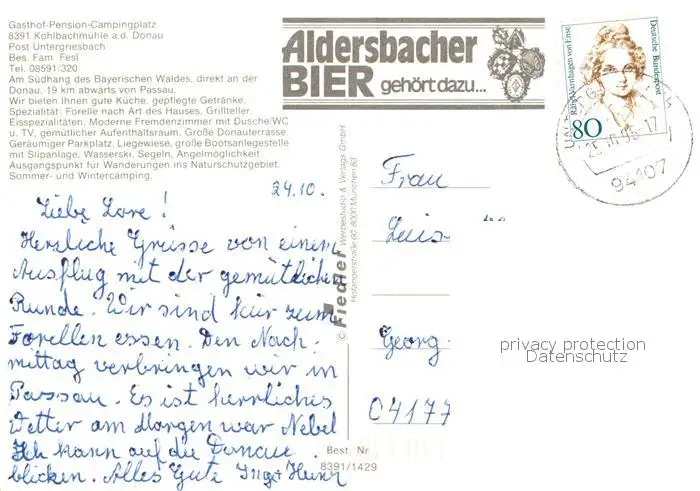 Gasthof-Pension-Campingplatz
8391 Kohlbachmühle a.d. Donau
Post Untergriesbach
Bes. Fam. Fesl
Tel. 08591/320
Am Südhang des Bayerischen Waldes, direkt an der
Donau, 19 km abwärts von Passau.
Wir bieten Ihnen gute Küche, gepflegte Getränke,
Spezialität: Forelle nach Art des Hauses, Grillteller,
Eisspezialitäten. Moderne Fremdenzimmer mit Dusche/WC
u. TV, gemütlicher Aufenthaltsraum. Große Donauterrasse.
Geräumiger Parkplatz, Liegewiese, große Bootsanlegestelle
mit Slipanlage, Wasserski, Segeln, Angelmöglichkeit
Ausgangspunkt für Wanderungen ins Naturschutzgebiet.
Sommer- und Wintercamping.
Aldersbacher
BIER gehört dazu...
Rahel Varnhagen von Ense
Deutsche Bundespost
80
94107
24.10.
Liebe Lore!
Herzliche Grüsse von einem
Ausflug mit der gemütlichen
Runde. Wir sind hier zum
Forellen essen. Den Nach-
mittag verbringen wir in
Passau. Es ist herrliches
Wetter am Morgen war Nebel
Ich kann auf die Donau
blicken. Alles Gute Inge
© Fiedler Werbestudio & Verlags GmbH
Hofangerstraße 60 8000 München 83
Best. Nr.
8391/1429
Frau
Luis
Georg
04177
privacy protection
Datenschutz